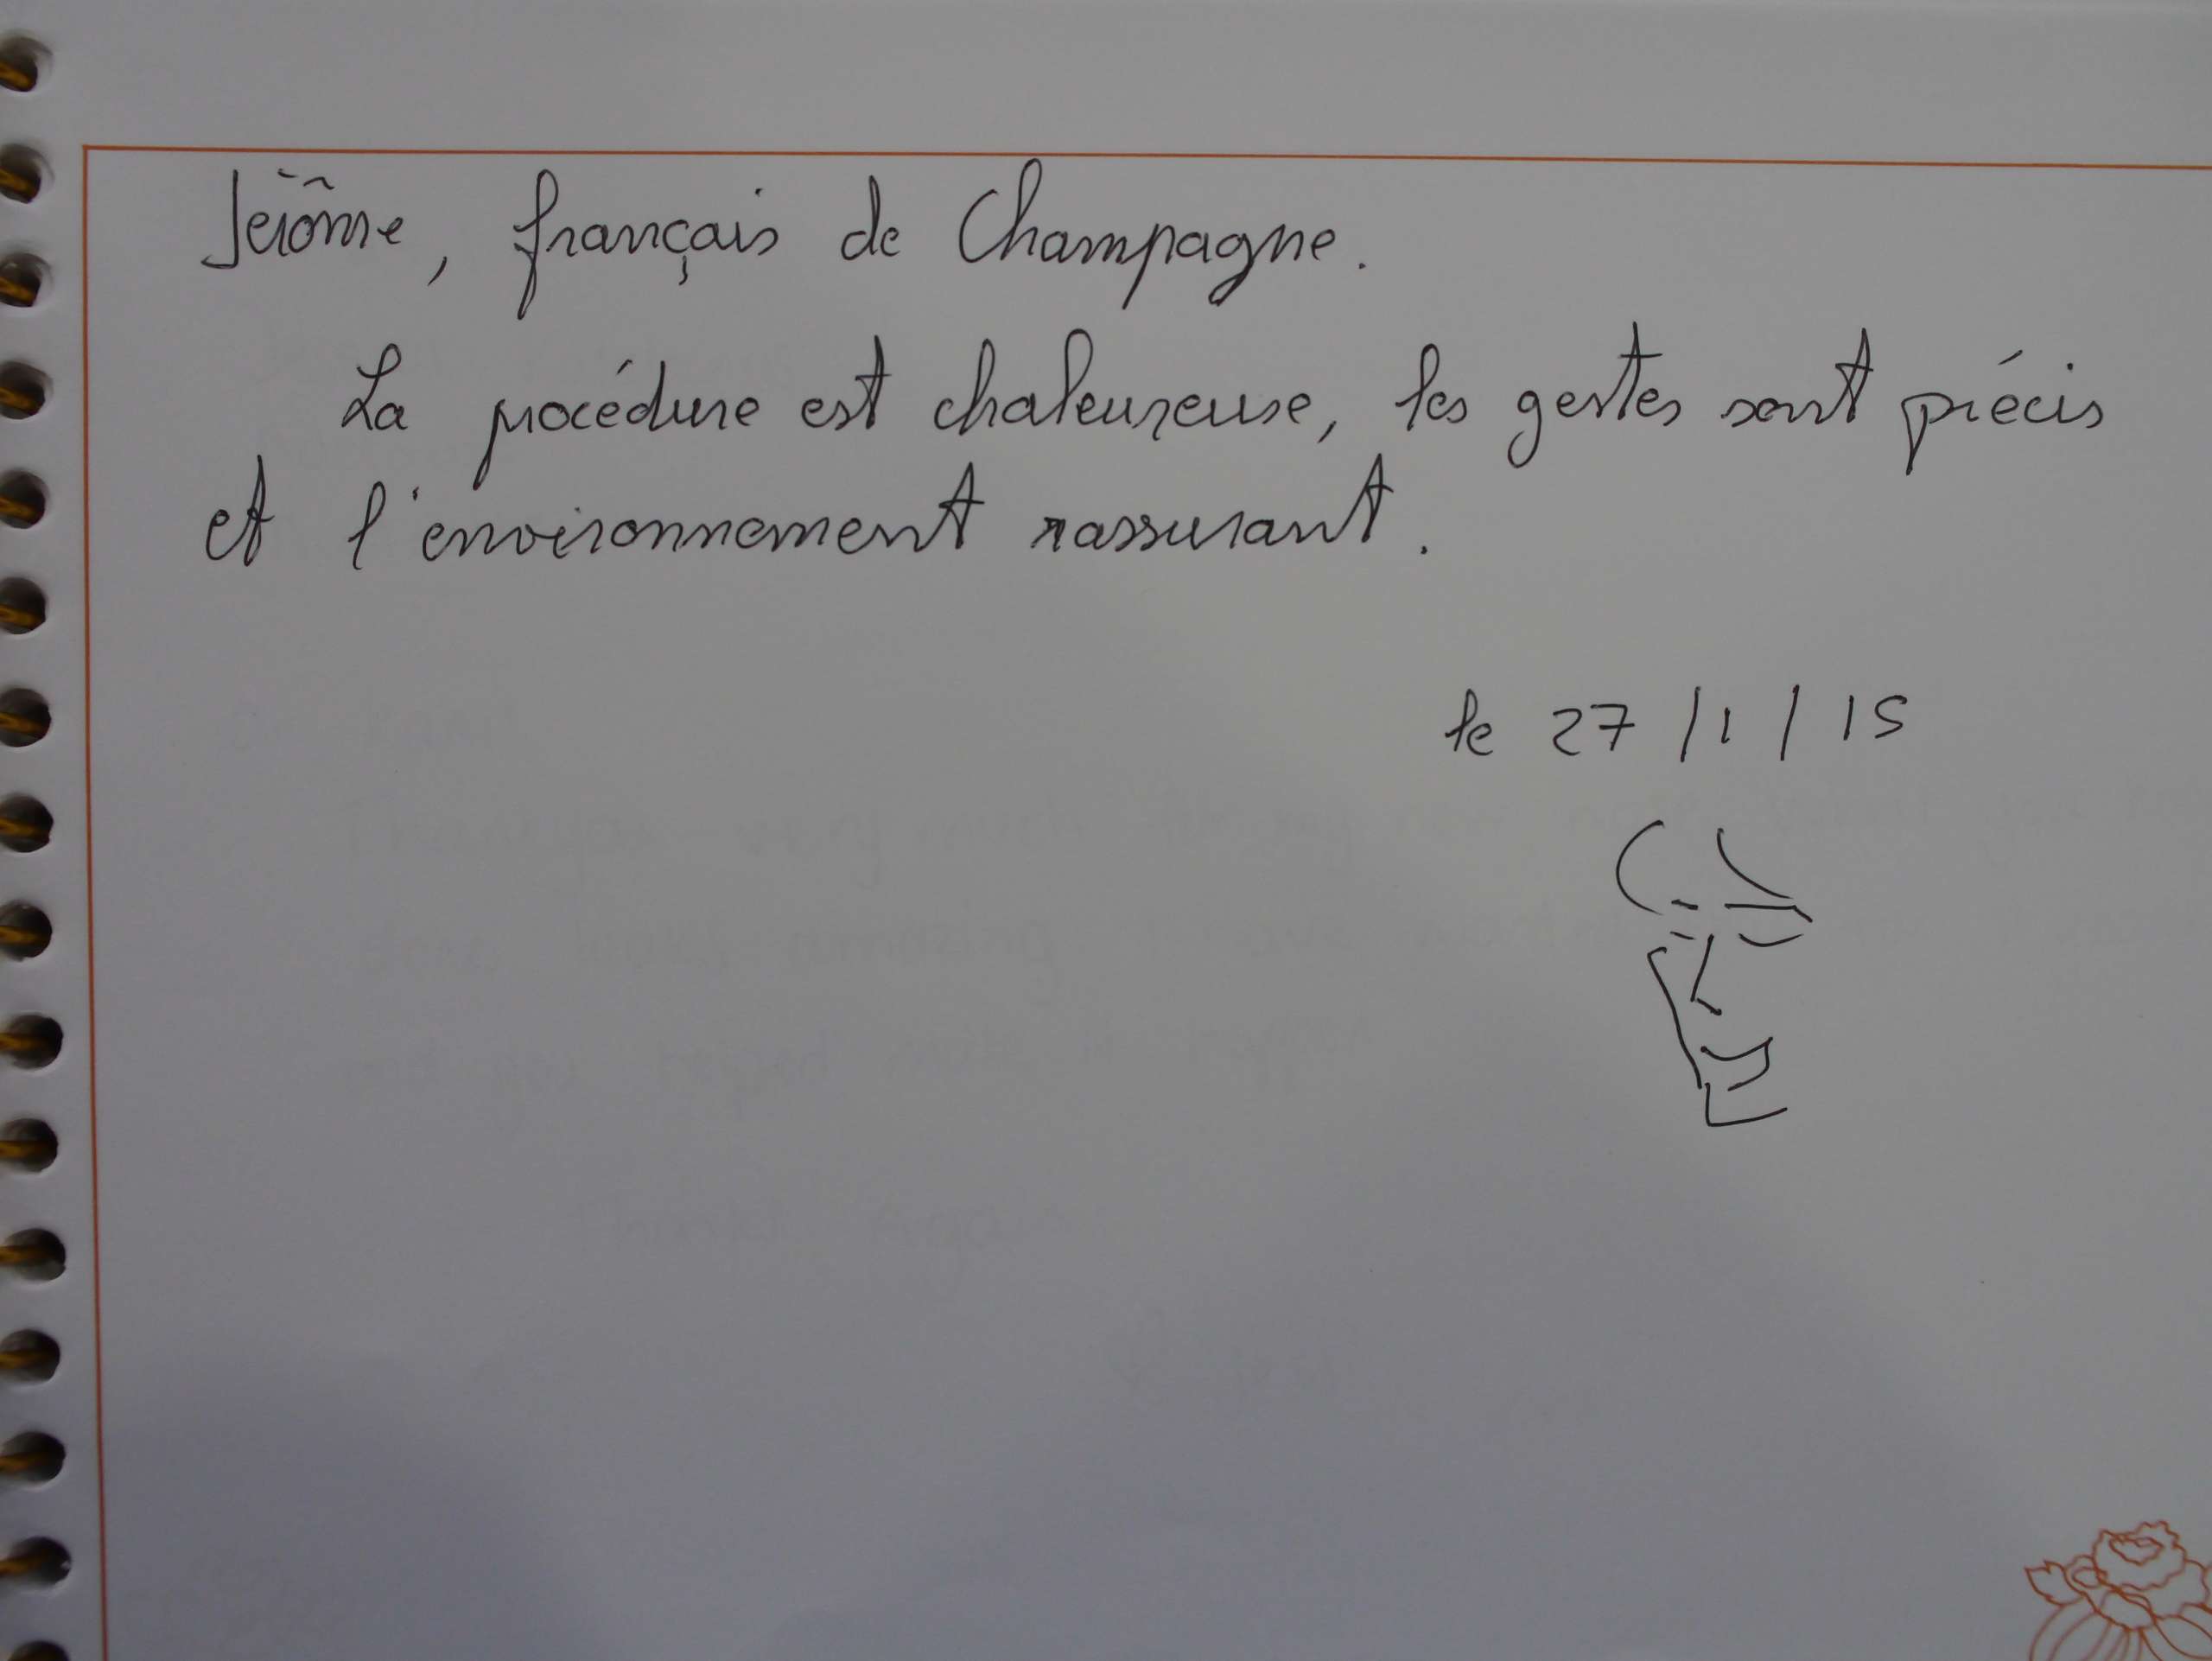 Jérôme, français de Champagne.
La procédure est chaleureuse, les gestes sont précis
et l'environnement rassurant.
le 27/1/15